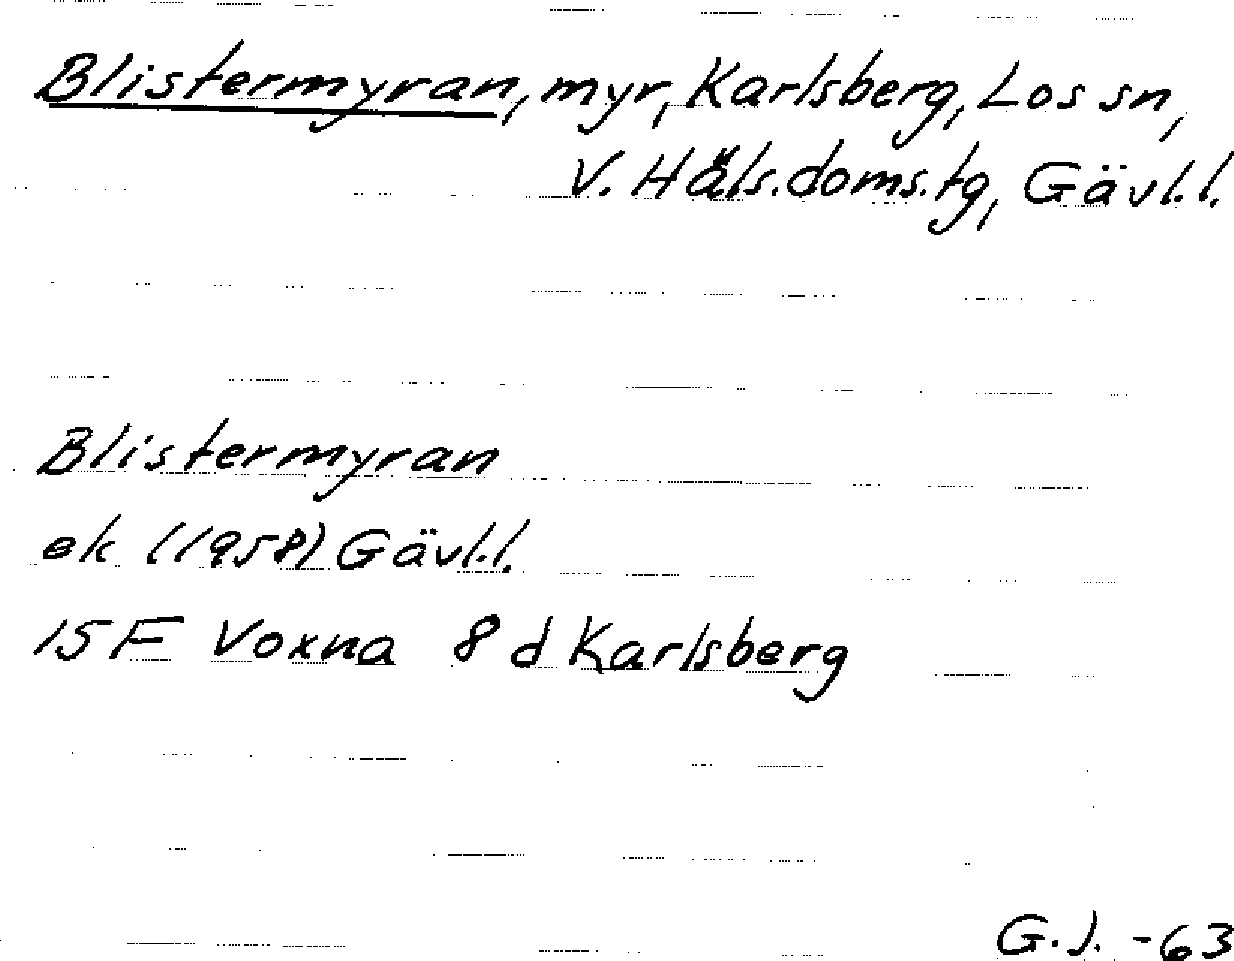 Blistermyran, myr, Karlsberg, Los sn,
V. Häls. doms. tg, Gävl. l.
Blistermyran
ek (1958) Gävl. l.
15 F Voxna 8 d Karlsberg
G.J. -63